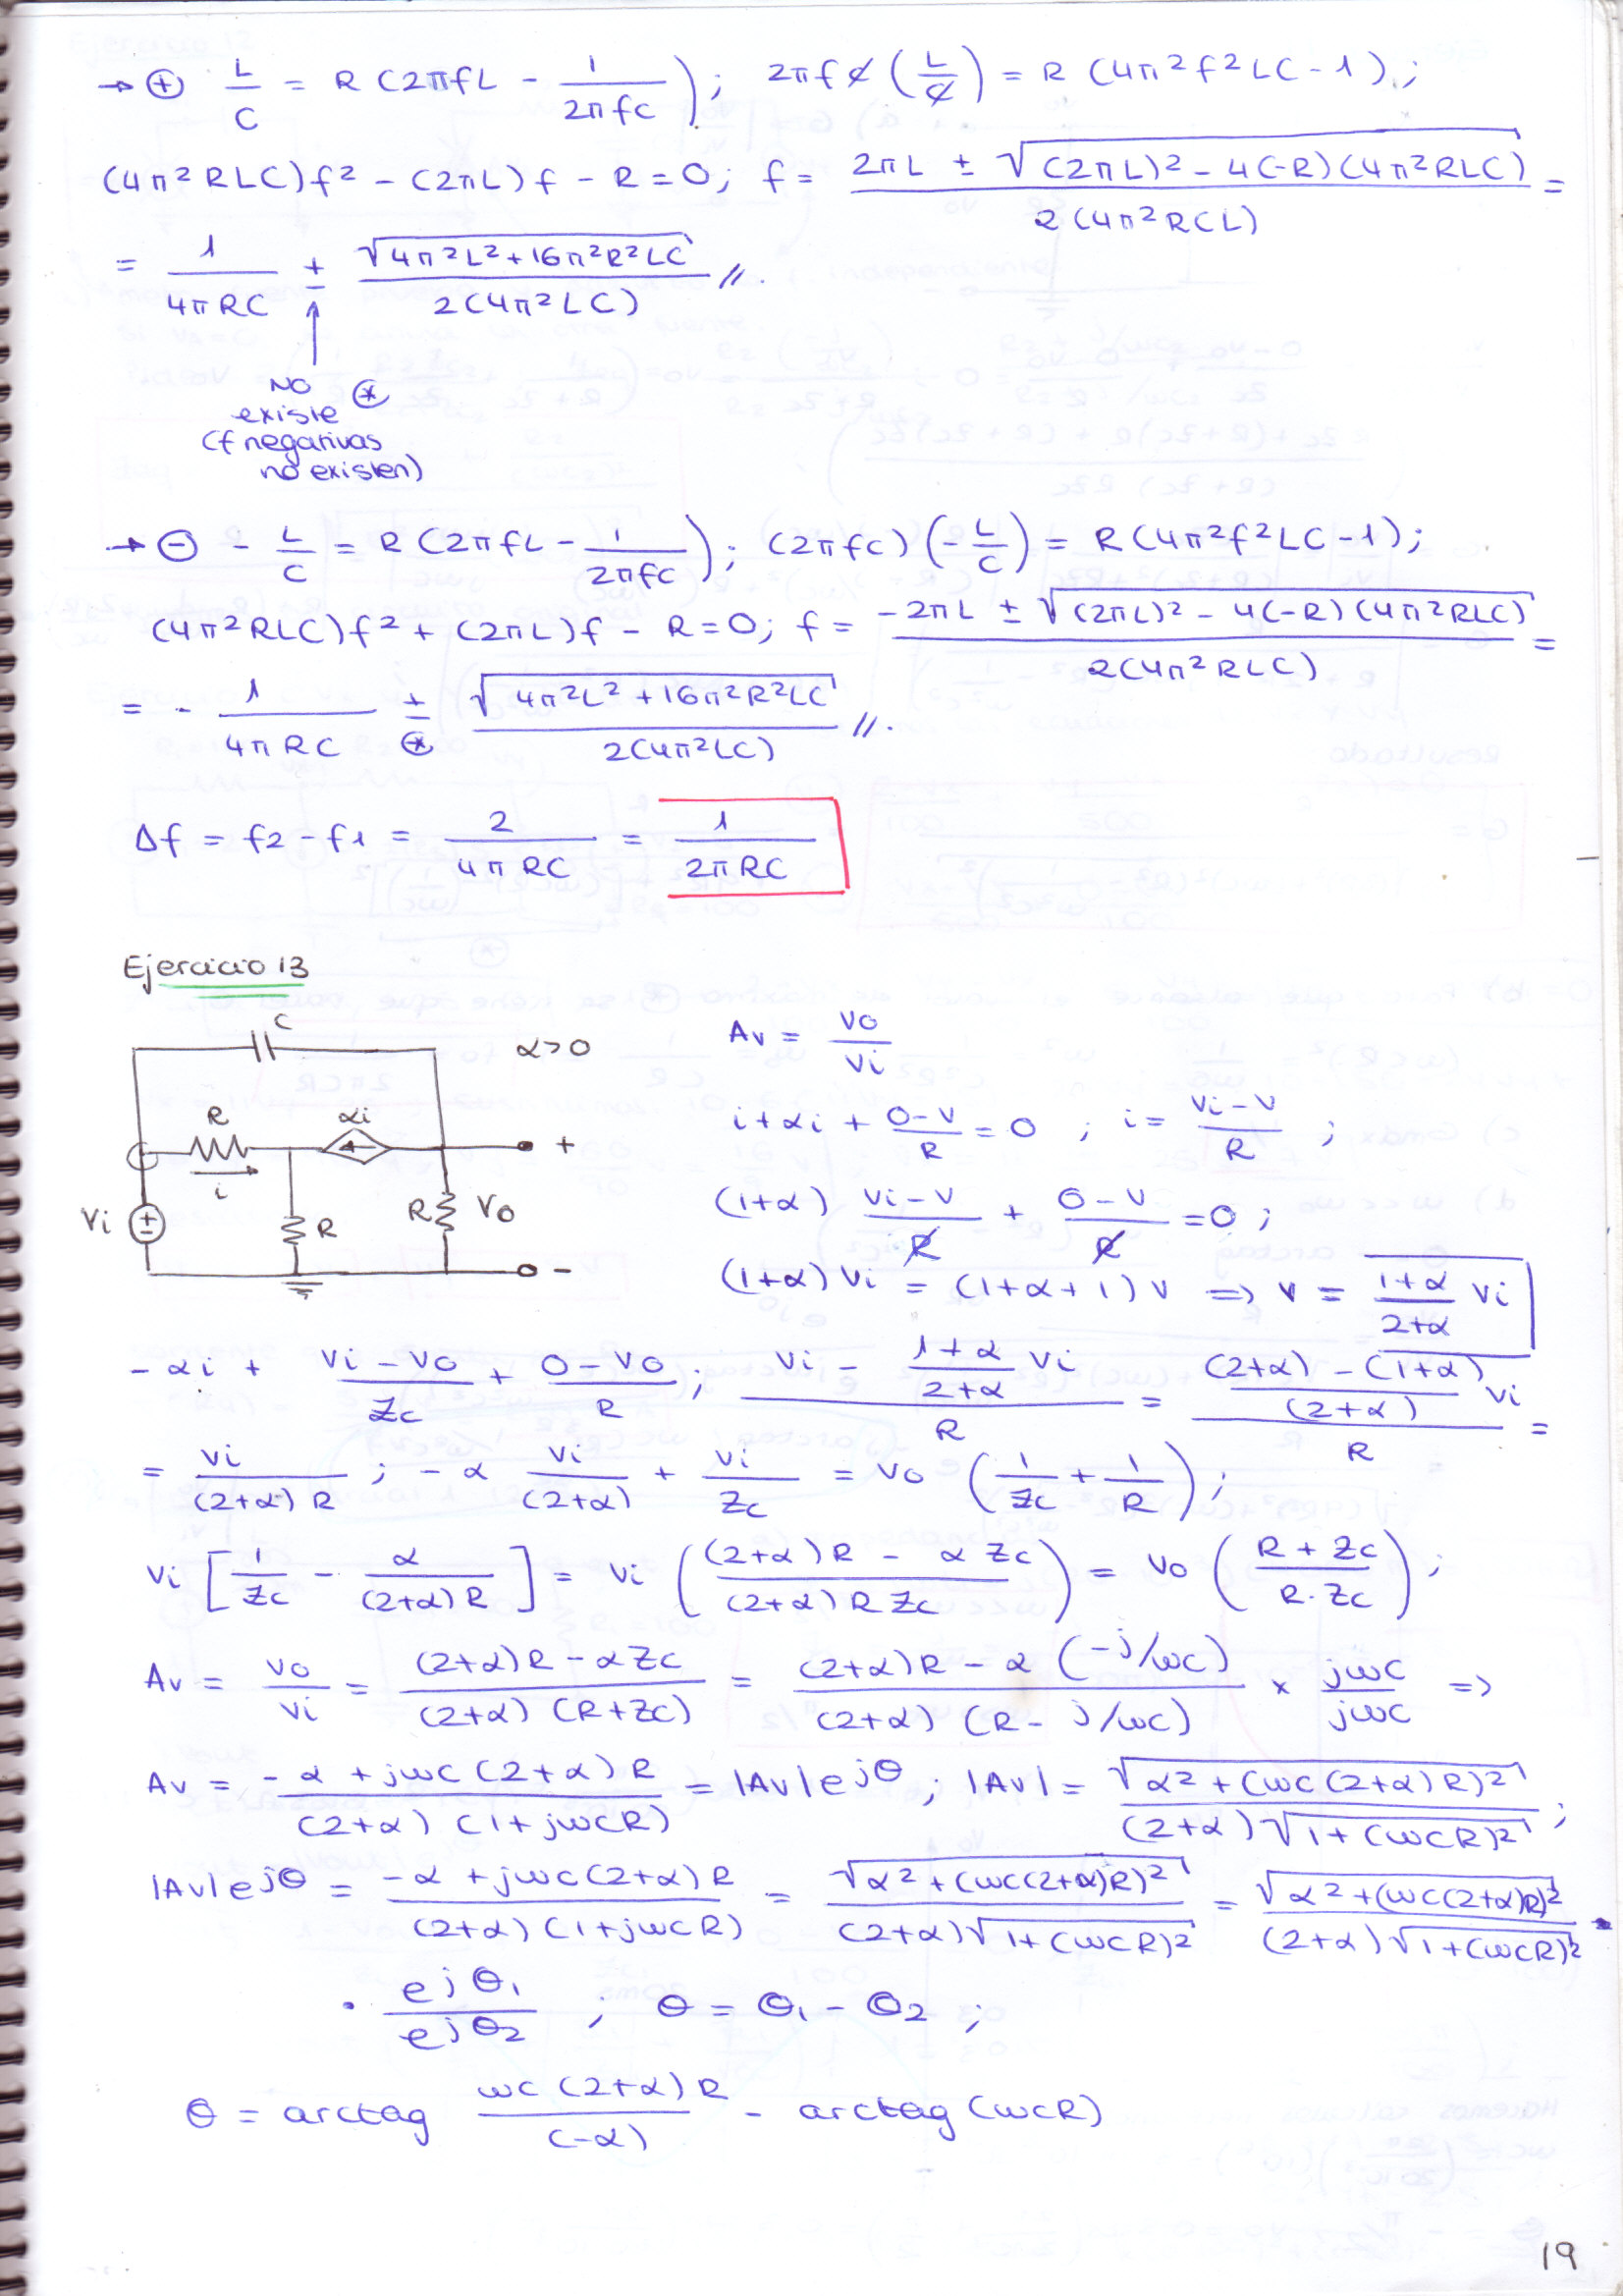 → ⊕ L/C = R (2πfL - 1/2πfC); 2πfC (L/C) = R (4π²f²LC-1);
(4π²RLC)f² - (2πL)f - R = 0; f = 2πL ± √(2πL)² - 4(-R)(4π²RLC) / 2(4π²RCL) =
= 1/4πRC ± √4π²L²+16π²R²LC / 2(4π²LC) //.
NO ⊛
existe
(f negativas
no existen)
→ ⊖ - L/C = R (2πfL - 1/2πfC); (2πfC) (-L/C) = R(4π²f²LC-1);
(4π²RLC)f² + (2πL)f - R = 0; f = -2πL ± √(2πL)² - 4(-R)(4π²RLC) / 2(4π²RLC) =
= - 1/4πRC ± ⊛ √4π²L²+16π²R²LC / 2(4π²LC) //.
Δf = f2 - f1 = 2/4πRC = 1/2πRC
Ejercicio 13
C
α>0
Av = Vo/Vi
R
αi
i
+
Vi
R
R
Vo
-
i + αi + 0-V/R = 0 ; i = Vi-V/R ;
(1+α) Vi-V/R + 0-V/R = 0 ;
(1+α) Vi = (1+α+1) V => V = 1+α/2+α Vi
- αi + Vi-Vo/Zc + 0-Vo/R ; Vi - 1+α/2+α Vi / R = (2+α) - (1+α)/(2+α) Vi / R =
= Vi/(2+α)R ; -α Vi/(2+α) + Vi/Zc = Vo (1/Zc + 1/R) ;
Vi [1/Zc - α/(2+α)R] = Vi ((2+α)R - αZc / (2+α)RZc) = Vo (R+Zc / R·Zc) ;
Av = Vo/Vi = (2+α)R - αZc / (2+α)(R+Zc) = (2+α)R - α(-j/ωC) / (2+α)(R - j/ωC) × jωC/jωC =>
Av = -α + jωC(2+α)R / (2+α)(1+jωCR) = |Av|e^jθ ; |Av| = √α² + (ωC(2+α)R)² / (2+α)√1+(ωCR)² ;
|Av|e^jθ = -α + jωC(2+α)R / (2+α)(1+jωCR) = √α² + (ωC(2+α)R)² / (2+α)√1+(ωCR)² = √α² + (ωC(2+α)R)² / (2+α)√1+(ωCR)² ·
· e^jθ1 / e^jθ2 ; θ = θ1 - θ2 ;
θ = arctag ωC(2+α)R / (-α) - arctag (ωCR)
19